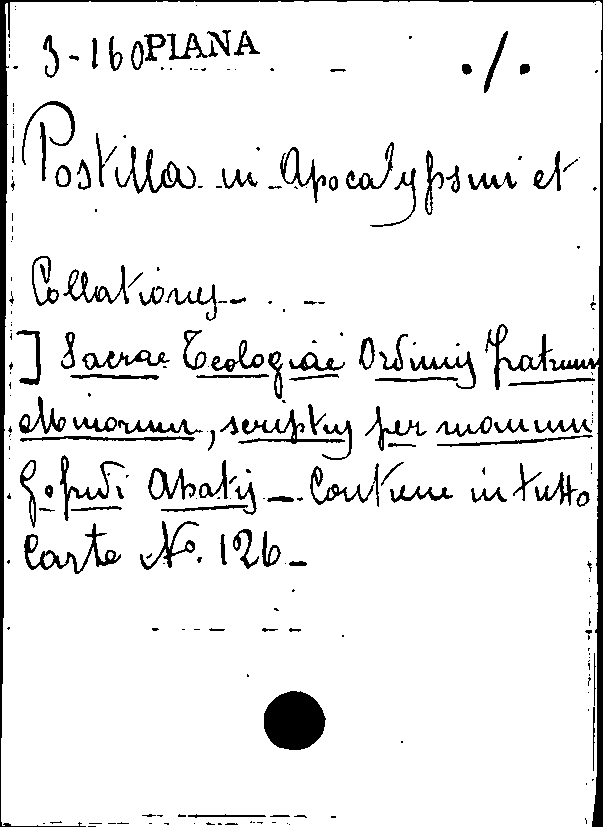 3-160 PIANA ./.
Postilla in Apocalypsim et
Collationes
] Sacrae Teologiae Ordinis Fratrum
Minorum, scriptus per manum
Abatis - Contiene in tutto
Carte No. 126 -